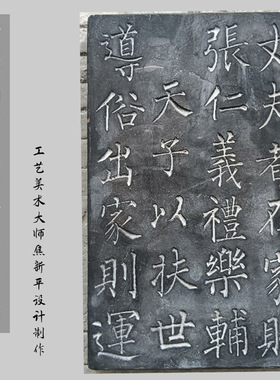 丈夫者在家則
張仁義禮樂輔
天子以扶世
導俗出家則運
工艺美术大师焦新平设计制作